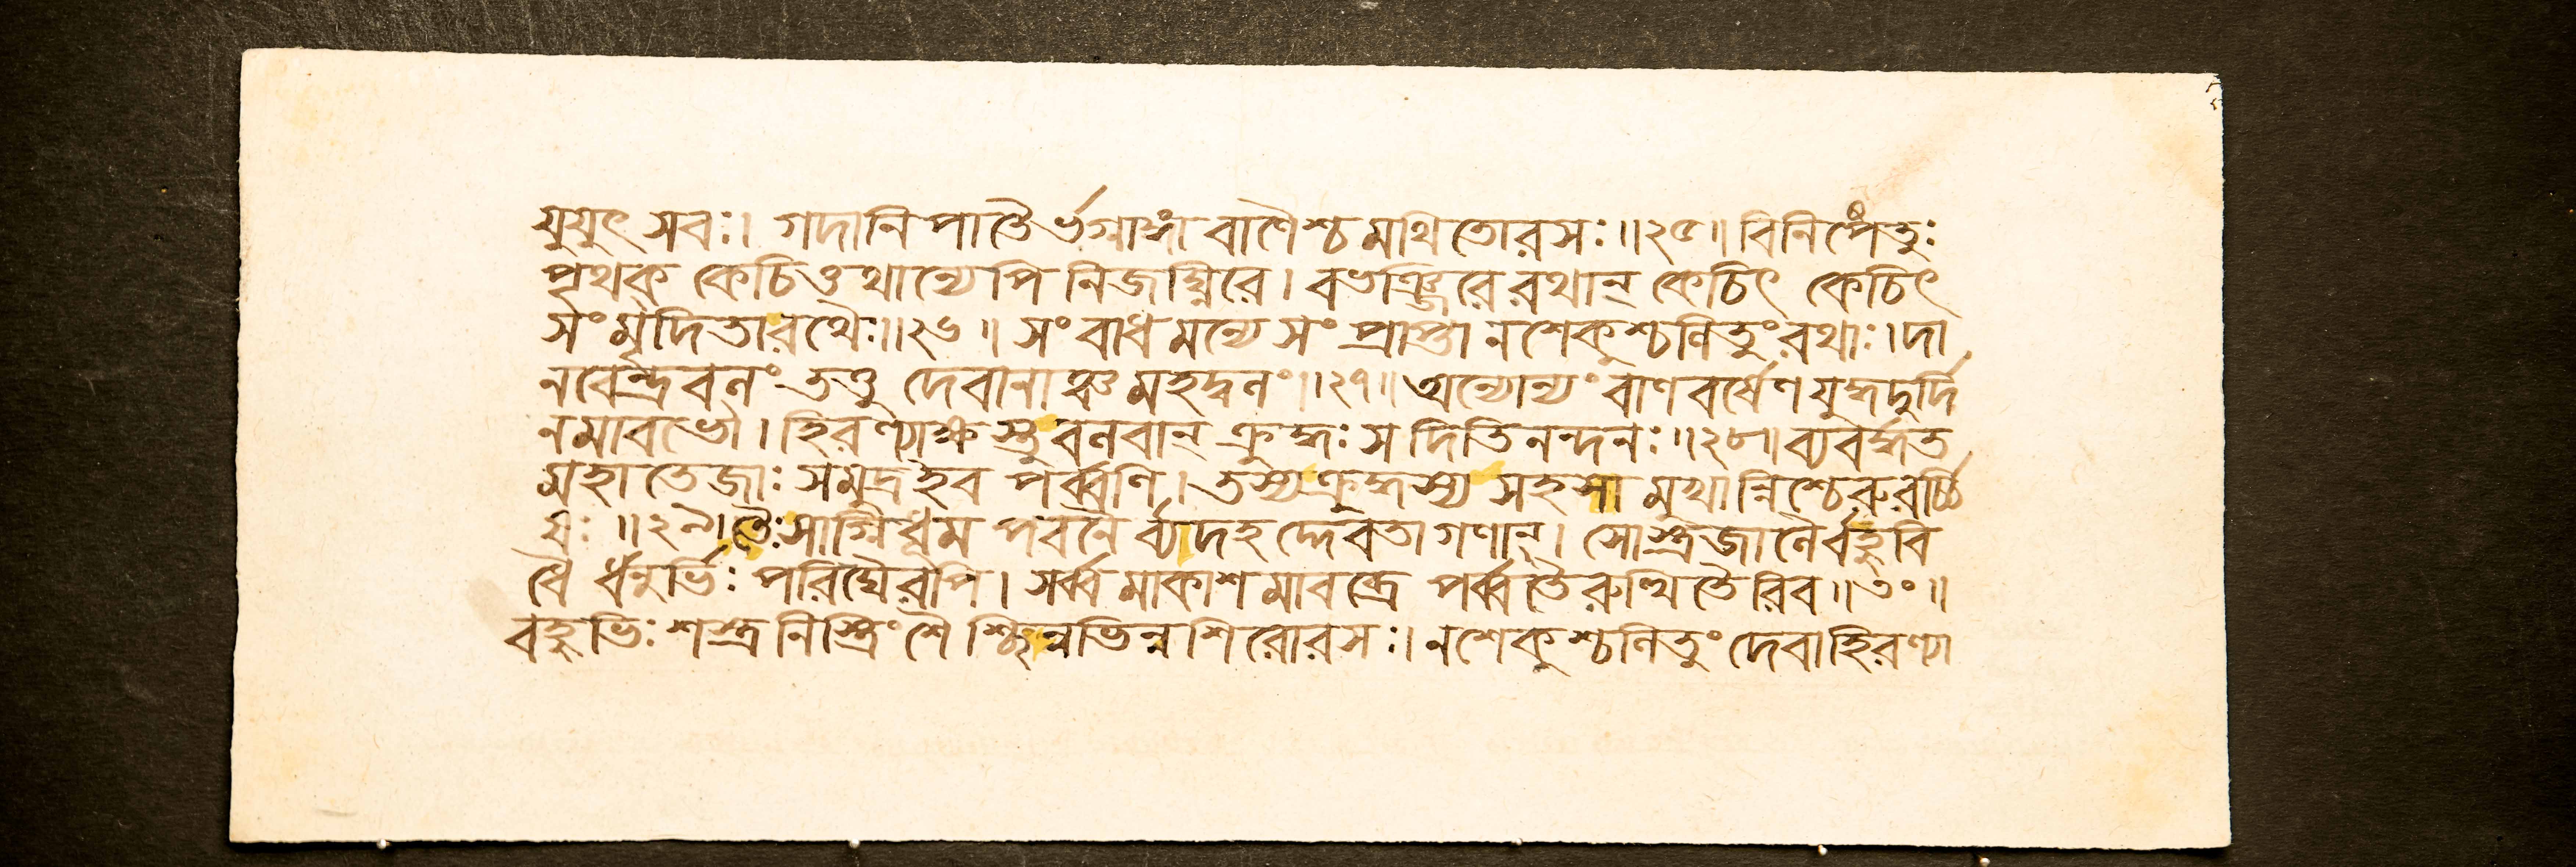 যুযুৎসবঃ। গদানিপাতৈর্ভগ্নাঙ্গা বাণৈশ্চ মথিতোরসঃ॥২৫॥ বিনিপেতুঃ
পৃথক কেচিত্তথান্যেপি নিজঘ্নিরে। বভঞ্জিরে রথান্ কেচিৎ কেচিৎ
সংমৃদিতা রথৈঃ॥২৬॥ সংবাধমন্যে সংপ্রাপ্তা নশেকুশ্চলিতুং রথাঃ। দা
নবেন্দ্রবলং তত্তু দেবানাঞ্চ মহদ্বলং॥২৭॥ অন্যোন্যং বাণবর্ষেণ যুদ্ধদুর্দ্দি
নমাবভৌ। হিরণ্যাক্ষস্তু বলবান্ ক্রুদ্ধঃ স দিতিনন্দনঃ॥২৮॥ ব্যবর্দ্ধত
মহাতেজাঃ সমুদ্র ইব পর্ব্বণি। তস্য ক্রুদ্ধস্য সহসা মুখান্নিশ্চেরুরর্চ্চি
ষঃ॥২৯। তৈঃ সাগ্নিধূমপবনৈর্ব্যাদহদ্দেবতাগণান্। সোস্ত্রজালৈর্বহুবি
ধৈর্ধনুর্ভিঃ পরিঘৈরপি। সর্ব্বমাকাশমাবব্রে পর্ব্বতৈরুত্থিতৈরিব॥৩০॥
বহুভিঃ শস্ত্রনিস্ত্রিংশৈশ্ছিন্নভিন্নশিরোরসঃ। নশেকুশ্চলিতুং দেবা হিরণ্যা